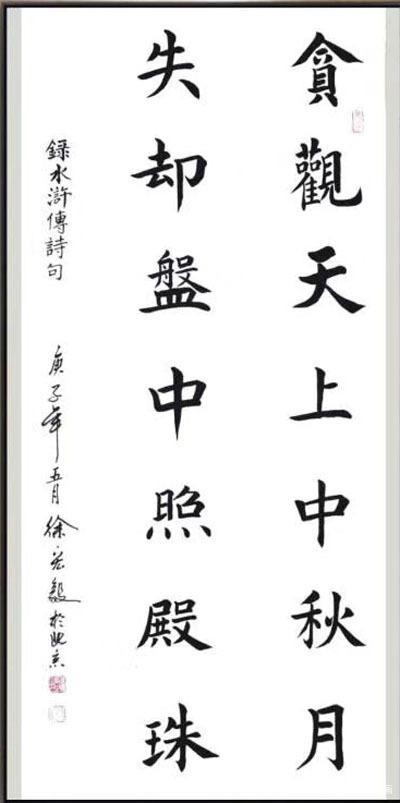 貪觀天上中秋月
失却盤中照殿珠
録水滸傳詩句
庚子年五月徐宏毅於北京